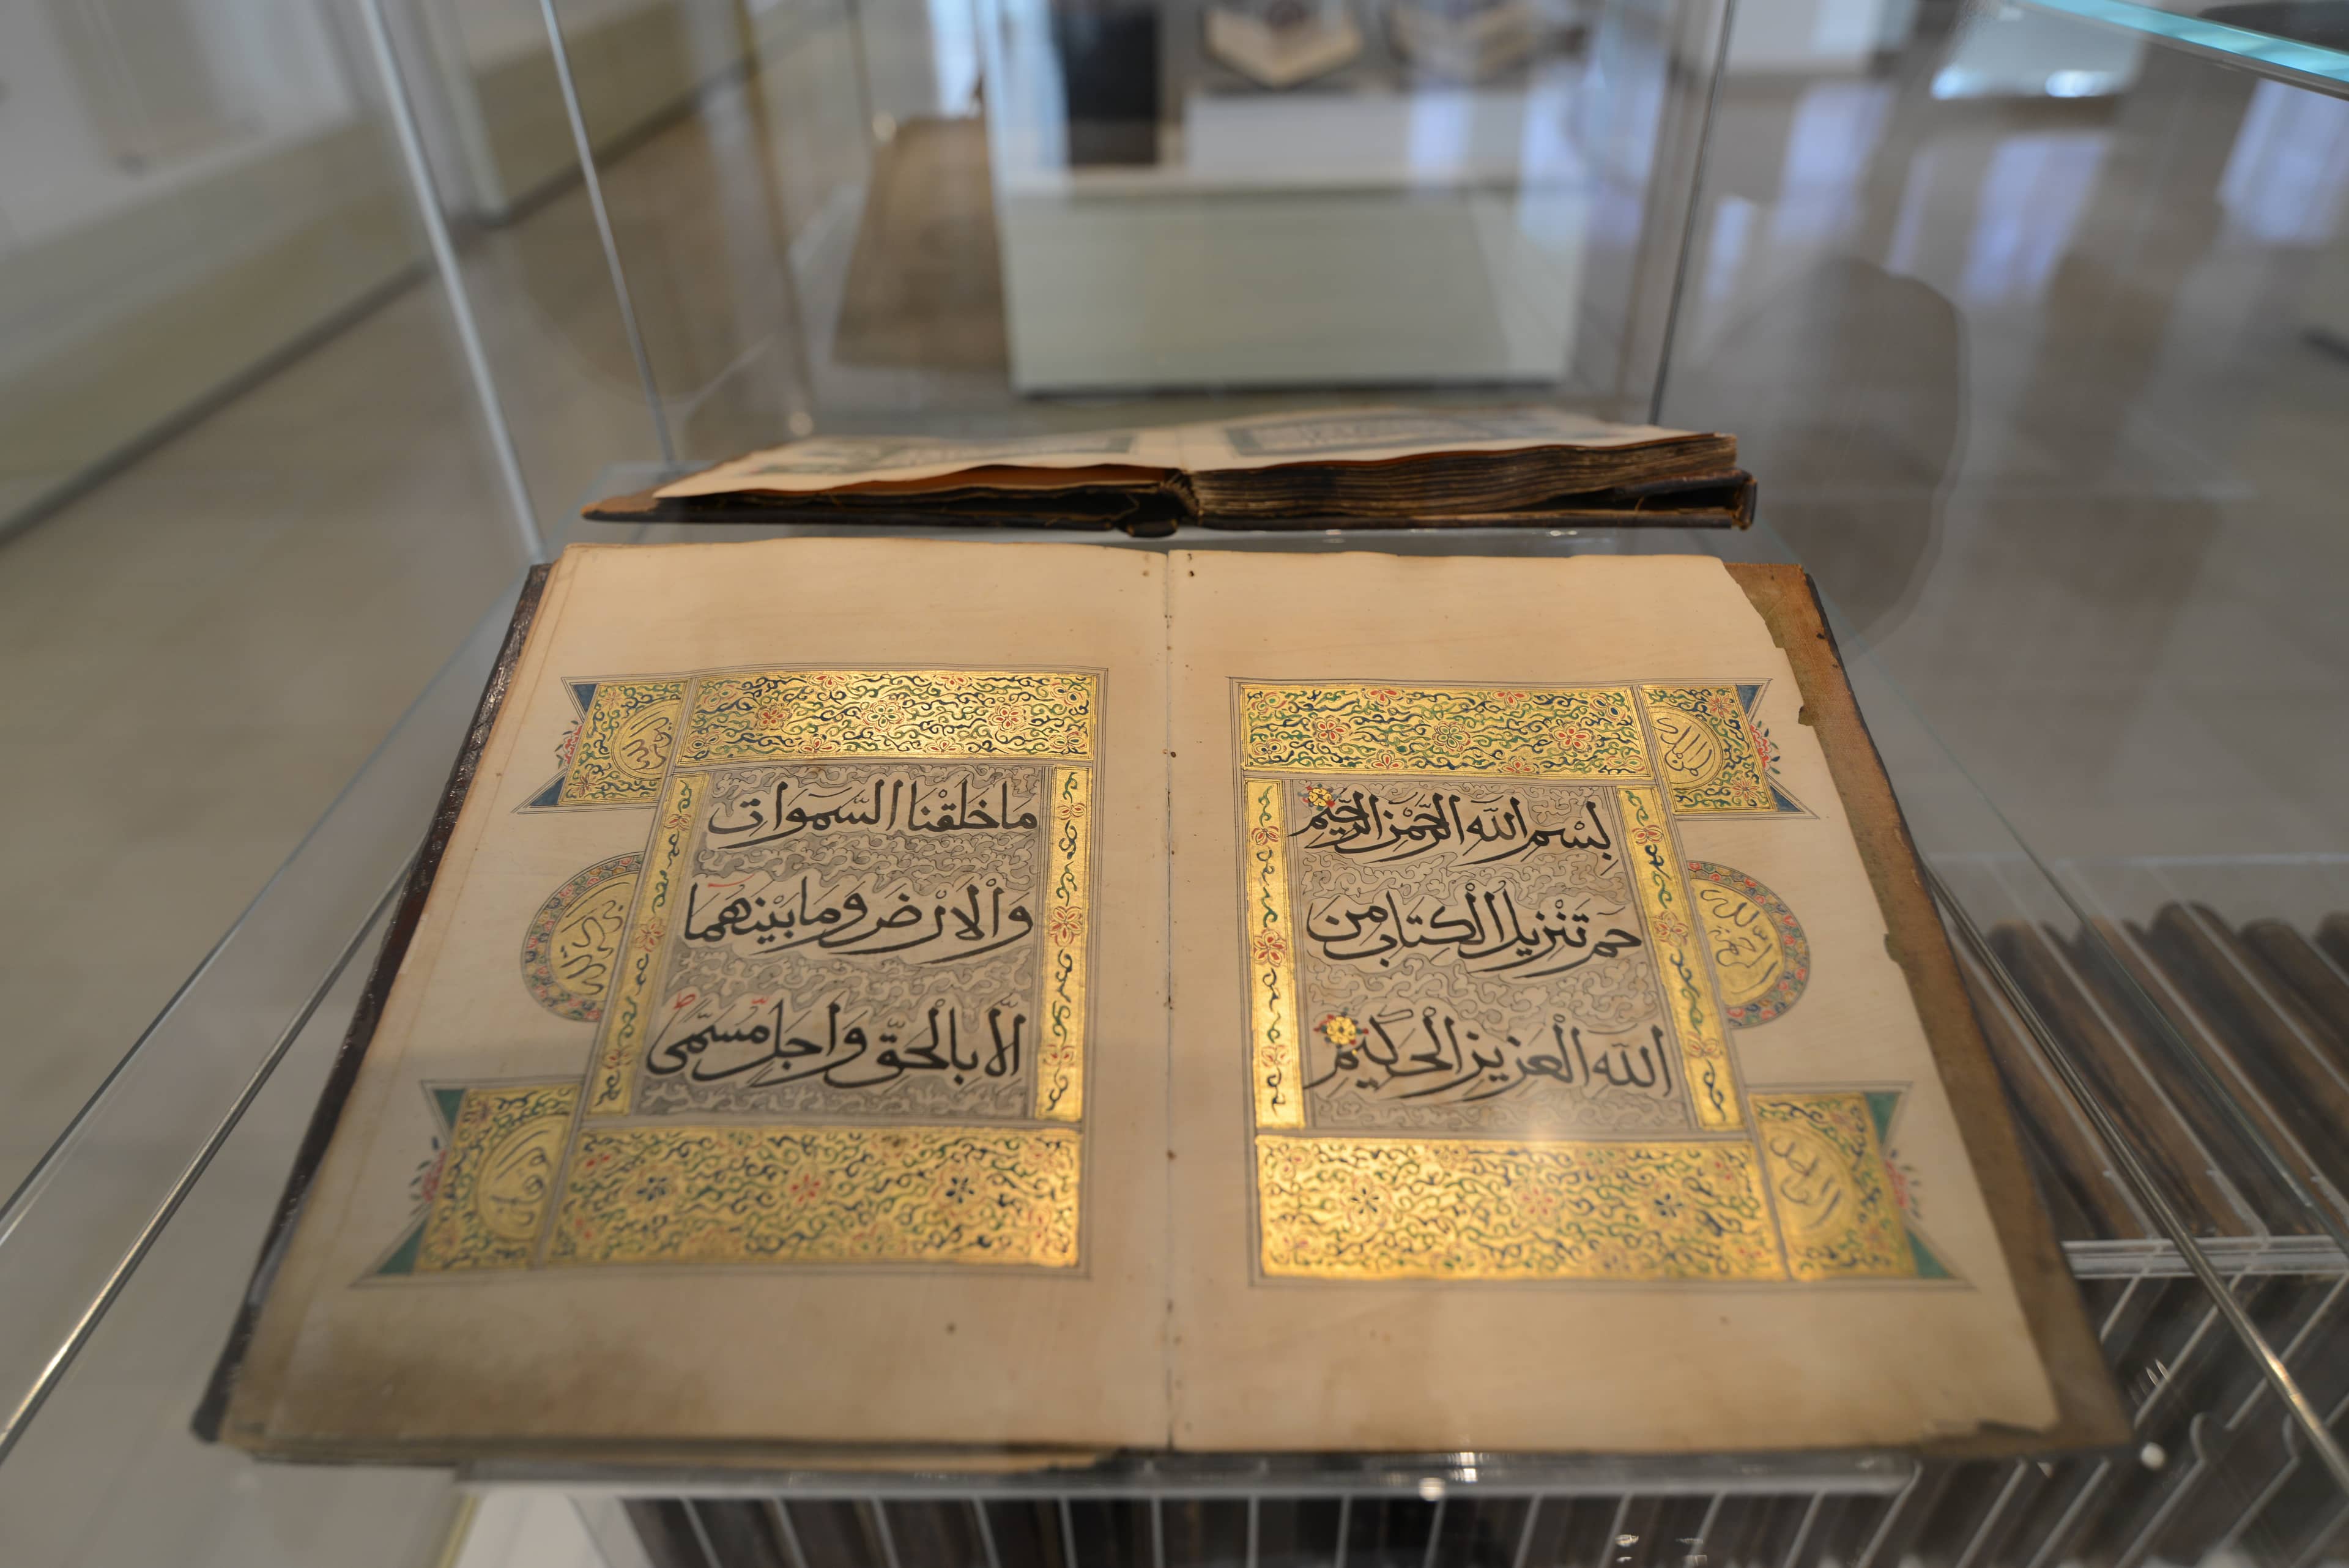 بِسْمِ اللَّهِ الرَّحْمٰنِ الرَّحِيمِ
حمۤ تَنْزِيلُ الْكِتَابِ مِنَ
اللَّهِ الْعَزِيزِ الْحَكِيمِ
مَا خَلَقْنَا السَّمَوَاتِ
وَالْاَرْضَ وَمَا بَيْنَهُمَا
اِلَّا بِالْحَقِّ وَاَجَلٍ مُسَمًّى